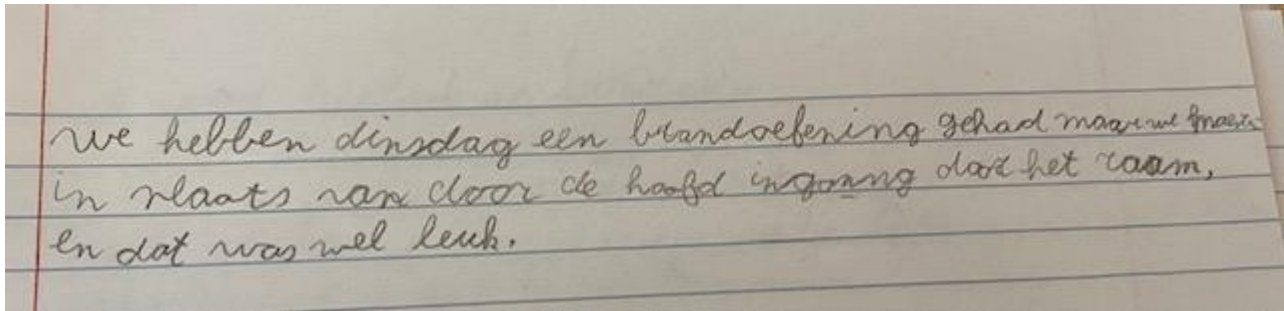 we hebben dinsdag een brandoefening gehad maar we
in plaats van door de hoofd ingang door het raam,
en dat was wel leuk.